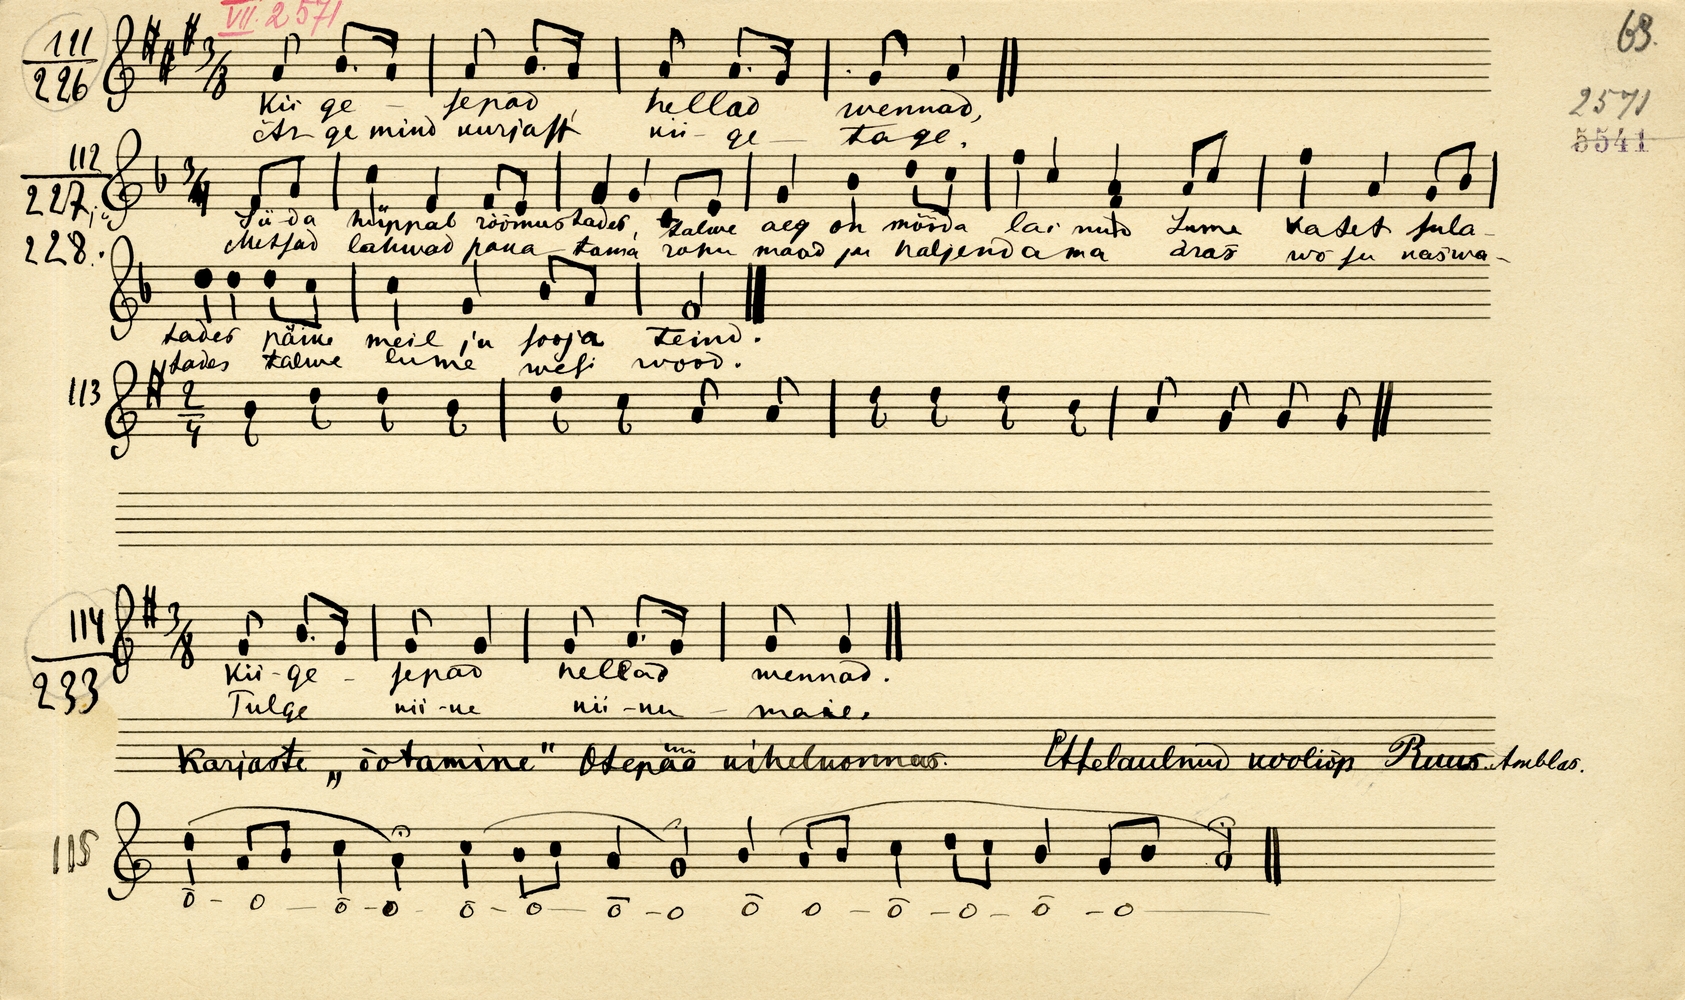 VII. 2571
63.
111
226
2571
5541
3/8
Kii ge - sepad, hellad wennad,
Är- ge mind kurjast kii- ge - tage.
112
227. ja
228.
3/4
Süda hüppab rõõmustades, talwe aeg on mööda lainud Lume katet sula-
Metsad lahwad pakatama rohu maad ju haljendama äras wõsu kaswa-
tades päike meil ju sooja teind.
tades talwe lume wesi wood.
113
2/4
114
233
3/8
Kii-ge - sepad hellad wennad.
Tulge nii-ne nii-nu - maie.
Karjaste „õotamine" Otepää kihelkonnas. Ettelaulnud kooliõp Ruus. Amblas.
115
ō - o - ō - o - ō - o - ō - o ō o - ō - o - ō - o